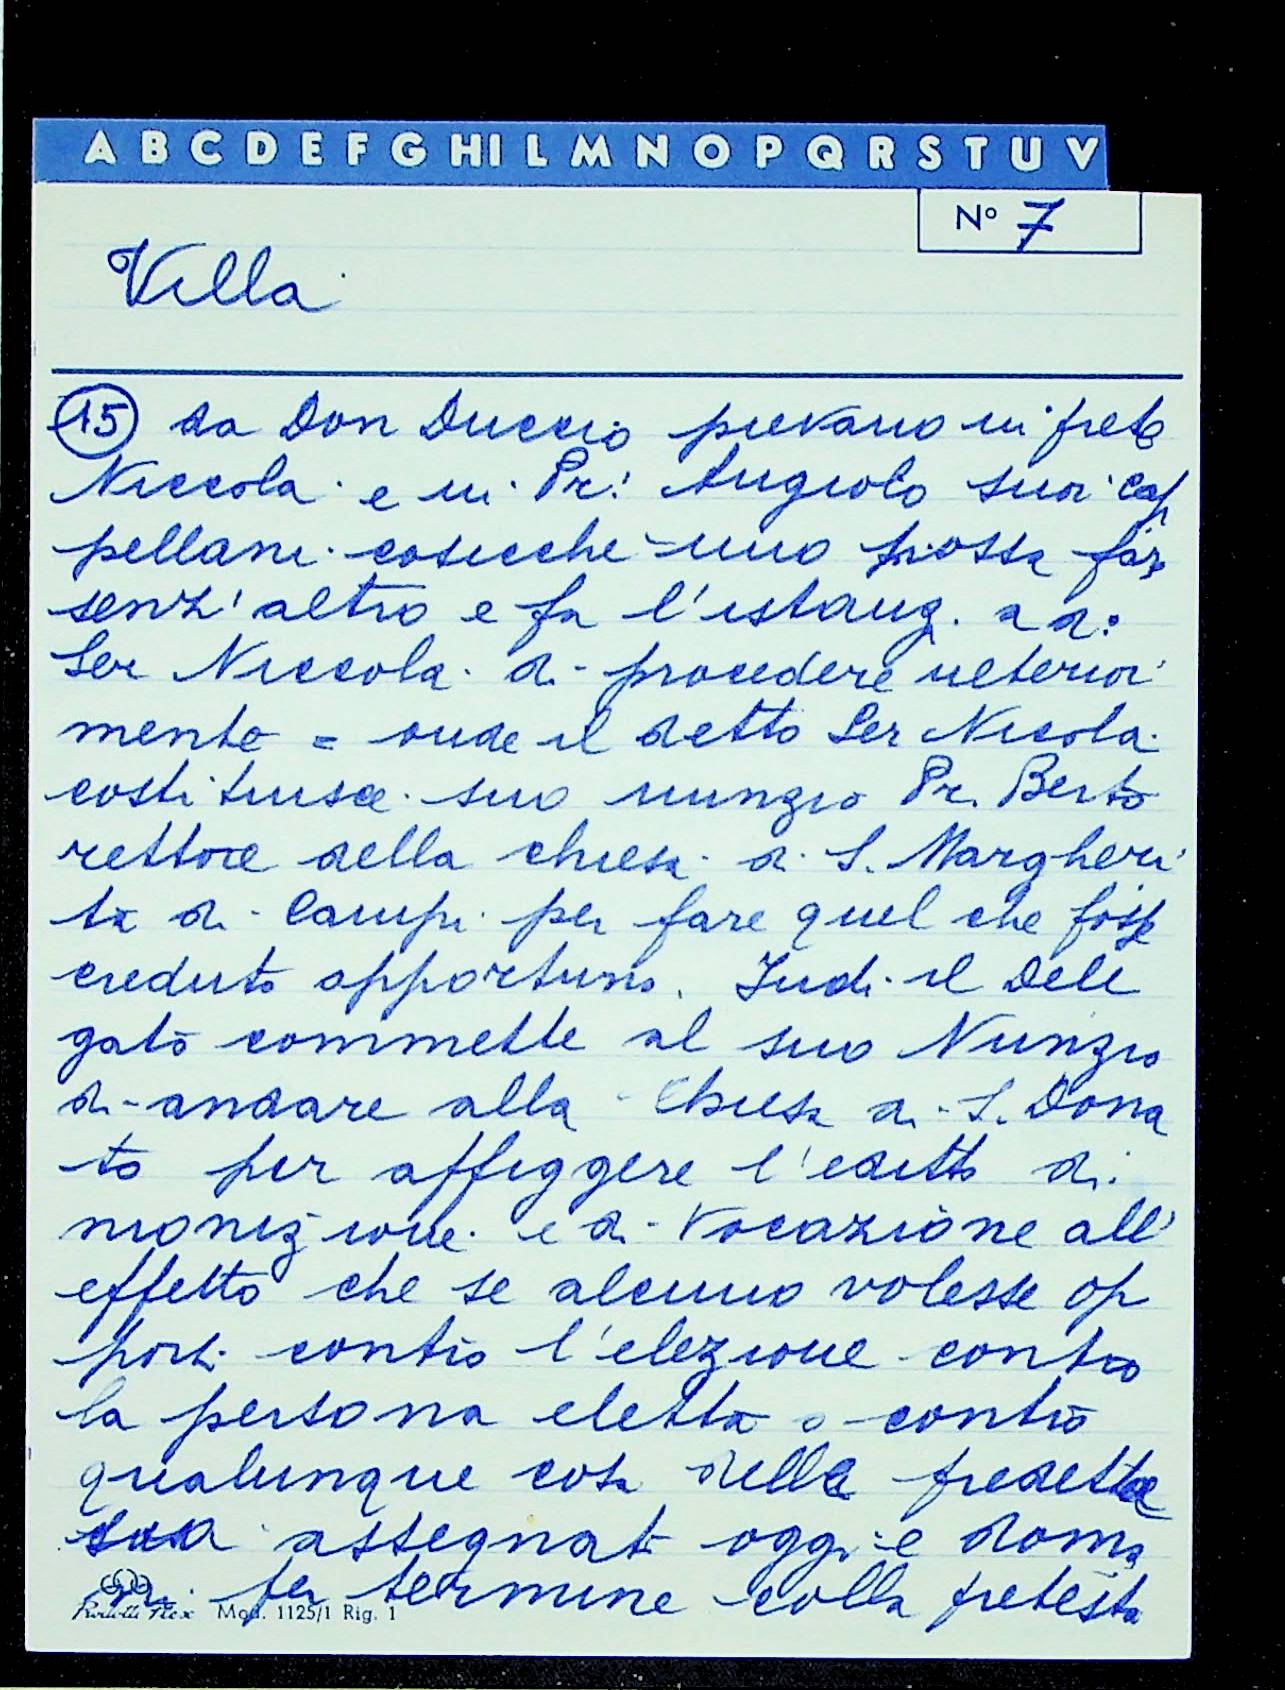 A B C D E F G H I L M N O P Q R S T U V
Nº 7
Villa
15 da Don Duccio pievano in prete
Niccola e in Pr. Angiolo suoi cap
pellani cosicche uno possa far
senz'altro e fa l'istanz. a d:
Ser Niccola di procedere ulterior
mente = onde il detto Ser Nicola
costituisce suo nunzio Pr. Berto
rettore della chiesa di S. Margheri
ta di Campi per fare quel che fosse
creduto opportuno. Indi il Dele
gato commette al suo Nunzio
di andare alla Chiesa di S. Dona
to per affiggere l'editto di
monizione e di Vocazione all'
effetto che se alcuno volesse op
porsi contro l'elezione contro
la persona eletta o contro
qualunque cosa delle predette
assegnati oggi e doma
ni per termine colla protesta
Mod. 1125/1 Rig. 1